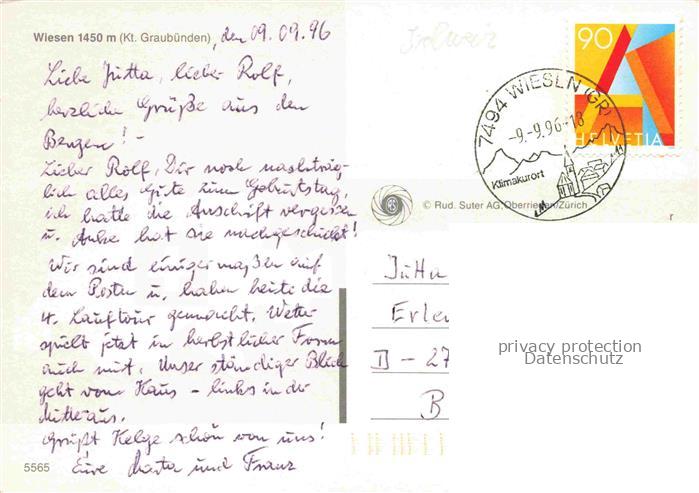 Wiesen 1450 m (Kt. Graubünden), den 09.09.96
Liebe Jutta, lieber Rolf,
herzliche Grüße aus den
Bergen! -
Lieber Rolf, Dir noch nachträg-
lich alles Gute zum Geburtstag,
ich hatte die Anschrift vergessen
u. Anke hat sie nachgeschickt!
Wir sind einigermaßen auf
dem Posten u. haben heute die
4. Lauftour gemacht. Wetter
spielt jetzt in herbstlicher Form
auch mit. Unser ständiger Blick
geht vom Haus - links in der
Mitte aus.
Grüßt Helge schön von uns!
Eure Marta und Franz
5565
Schweiz
90
A
HELVETIA
7494 WIESEN (GR)
-9.-9.96-18
Klimakurort
© Rud. Suter AG, Oberrieden/Zürich
r
Jutta
Erle
D - 27
B
privacy protection
Datenschutz